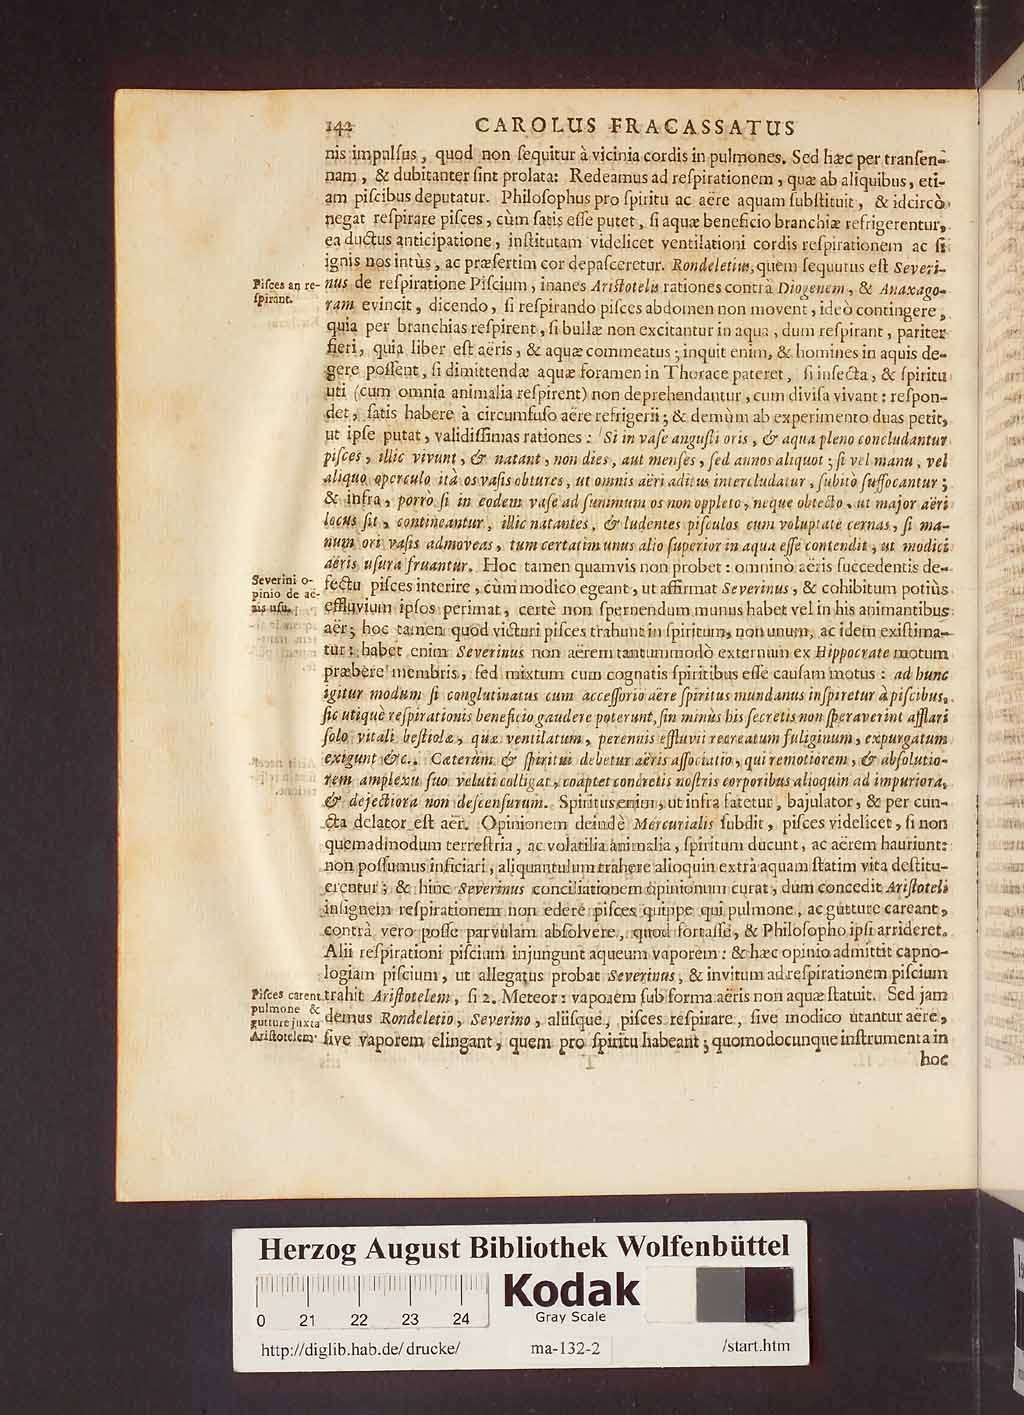 142 CAROLUS FRACASSATUS
nis impulſus, quod non ſequitur à vicinia cordis in pulmones. Sed hæc per tranſen-
nam, & dubitanter ſint prolata: Redeamus ad reſpirationem, quæ ab aliquibus, eti-
am piſcibus deputatur. Philoſophus pro ſpiritu ac aëre aquam ſubſtituit, & idcircò
negat reſpirare piſces, cùm ſatis eſſe putet, ſi aquæ beneficio branchiæ refrigerentur,
ea ductus anticipatione, inſtitutam videlicet ventilationi cordis reſpirationem ac ſi
ignis nos intùs, ac præſertim cor depaſceretur. Rondeletius, quem ſequutus eſt Severi-
Piſces an re-
ſpirant.
nus de reſpiratione Piſcium, inanes Ariſtotelis rationes contrà Diogenem, & Anaxago-
ram evincit, dicendo, ſi reſpirando piſces abdomen non movent, ideò contingere,
quia per branchias reſpirent, ſi bullæ non excitantur in aqua, dum reſpirant, pariter
fieri, quia liber eſt aëris, & aquæ commeatus; inquit enim, & homines in aquis de-
gere poſſent, ſi dimittendæ aquæ foramen in Thorace pateret, ſi inſecta, & ſpiritu
uti (cum omnia animalia reſpirent) non deprehendantur, cum diviſa vivant: reſpon-
det, ſatis habere à circumfuſo aëre refrigerii; & demùm ab experimento duas petit,
ut ipſe putat, validiſſimas rationes: Si in vaſe anguſti oris, & aqua pleno concludantur
piſces, illic vivunt, & natant, non dies, aut menſes, ſed annos aliquot; ſi vel manu, vel
aliquo operculo ità os vaſis obtures, ut omnis aëri aditus intercludatur, ſubitò ſuffocantur;
& infra, porrò ſi in eodem vaſe ad ſummum os non oppleto, neque obtecto, ut major aëri
locus ſit, contineantur, illic natantes, & ludentes piſculos cum voluptate cernas, ſi ma-
num ori vaſis admoveas, tum certatim unus alio ſuperior in aqua eſſe contendit, ut modici
aëris uſura fruantur. Hoc tamen quamvis non probet: omnino aëris ſuccedentis de-
Severini o-
pinio de aë-
ris uſu.
fectu piſces interire, cùm modico egeant, ut affirmat Severinus, & cohibitum potiùs
effluvium ipſos perimat, certè non ſpernendum munus habet vel in his animantibus
aër; hoc tamen quod victuri piſces trahunt in ſpiritum, non unum, ac idem exiſtima-
tur: habet enim Severinus non aërem tantummodò externum ex Hippocrate motum
præbere membris, ſed mixtum cum cognatis ſpiritibus eſſe cauſam motus: ad hunc
igitur modum ſi conglutinatus cum acceſſorio aëre ſpiritus mundanus inſpiretur à piſcibus,
ſic utiquè reſpirationis beneficio gaudere poterunt, ſin minùs his ſecretis non ſperaverint afflari
ſolo vitali beſtiolæ, quæ ventilatum, perennis effluvii recreatum fuliginum, expurgatum
exigunt &c. Cæterùm & ſpiritui debetur aëris aſſociatio, qui remotiorem, & abſolutio-
rem amplexu ſuo veluti colligat, coaptet concretis noſtris corporibus alioquin ad impuriora,
& dejectiora non deſcenſurum. Spiritus enim, ut infra fatetur, bajulator, & per cun-
cta delator eſt aër. Opinionem deindè Mercurialis ſubdit, piſces videlicet, ſi non
quemadmodum terreſtria, ac volatilia animalia, ſpiritum ducunt, ac aërem hauriunt:
non poſſumus inficiari, aliquantulum trahere alioquin extrà aquam ſtatim vita deſtitu-
erentur; & hinc Severinus conciliationem opinionum curat, dum concedit Ariſtoteli
inſignem reſpirationem non edere piſces quippe qui pulmone, ac gutture careant,
contrà vero poſſe parvulam abſolvere, quod fortaſſe, & Philoſopho ipſi arrideret.
Alii reſpirationi piſcium injungunt aqueum vaporem: & hæc opinio admittit capno-
logiam piſcium, ut allegatus probat Severinus, & invitum ad reſpirationem piſcium
Piſces carent
pulmone &
gutture juxta
Ariſtotelem.
trahit Ariſtotelem, ſi 2. Meteor: vaporem ſub forma aëris non aquæ ſtatuit. Sed jam
demus Rondeletio, Severino, aliiſque, piſces reſpirare, ſive modico utantur aëre,
ſive vaporem elingant, quem pro ſpiritu habeant; quomodocunque inſtrumenta in
hoc
Herzog August Bibliothek Wolfenbüttel
0 21 22 23 24
Kodak
Gray Scale
http://diglib.hab.de/drucke/ ma-132-2 /start.htm